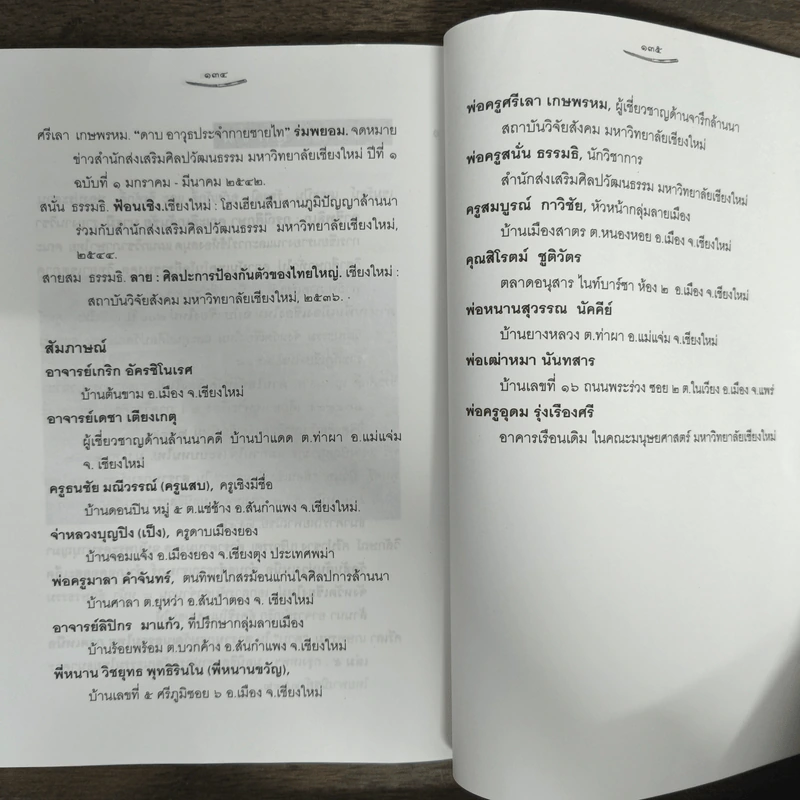 ๑๓๔
ศรีเลา เกษพรหม. “ดาบ อาวุธประจำกายชายไท” ร่มพยอม. จดหมาย
ข่าวสำนักส่งเสริมศิลปวัฒนธรรม มหาวิทยาลัยเชียงใหม่ ปีที่ ๑
ฉบับที่ ๑ มกราคม - มีนาคม ๒๕๔๒.
สนั่น ธรรมธิ. ฟ้อนเชิง.เชียงใหม่ : โฮงเฮียนสืบสานภูมิปัญญาล้านนา
ร่วมกับสำนักส่งเสริมศิลปวัฒนธรรม มหาวิทยาลัยเชียงใหม่,
๒๕๔๔.
สายสม ธรรมธิ. ลาย : ศิลปะการป้องกันตัวของไทยใหญ่. เชียงใหม่ :
สถาบันวิจัยสังคม มหาวิทยาลัยเชียงใหม่, ๒๕๓๖.
สัมภาษณ์
อาจารย์เกริก อัครชิโนเรศ
บ้านต้นขาม อ.เมือง จ.เชียงใหม่
อาจารย์เดชา เตียงเกตุ
ผู้เชี่ยวชาญด้านล้านนาคดี บ้านป่าแดด ต.ท่าผา อ.แม่แจ่ม
จ. เชียงใหม่
ครูธนชัย มณีวรรณ์ (ครูแสบ), ครูเชิงมีชื่อ
บ้านดอนปิน หมู่ ๕ ต.แช่ช้าง อ.สันกำแพง จ.เชียงใหม่.
จ่าหลวงบุญปิง (เป็ง), ครูดาบเมืองยอง
บ้านจอมแจ้ง อ.เมืองยอง จ.เชียงตุง ประเทศพม่า
พ่อครูมาลา คำจันทร์, ตนทิพยไกสรม้อนแก่นใจศิลปการล้านนา
บ้านศาลา ต.ยุหว่า อ.สันป่าตอง จ. เชียงใหม่
อาจารย์ลิปิกร มาแก้ว, ที่ปรึกษากลุ่มลายเมือง
บ้านร้อยพร้อม ต.บวกค้าง อ.สันกำแพง จ.เชียงใหม่
พี่หนาน วิชยุทธ พุทธิรินโน (พี่หนานขวัญ),
บ้านเลขที่ ๕ ศรีภูมิซอย ๖ อ.เมือง จ.เชียงใหม่
๑๓๕
พ่อครูศรีเลา เกษพรหม, ผู้เชี่ยวชาญด้านจารึกล้านนา
สถาบันวิจัยสังคม มหาวิทยาลัยเชียงใหม่
พ่อครูสนั่น ธรรมธิ, นักวิชาการ
สำนักส่งเสริมศิลปวัฒนธรรม มหาวิทยาลัยเชียงใหม่
ครูสมบูรณ์ กาวิชัย, หัวหน้ากลุ่มลายเมือง
บ้านเมืองสาตร ต.หนองหอย อ.เมือง จ.เชียงใหม่
คุณสิโรตม์ ชูติวัตร
ตลาดอนุสาร ไนท์บาร์ซา ห้อง ๒ อ.เมือง จ.เชียงใหม่
พ่อหนานสุวรรณ นัคคีย์
บ้านยางหลวง ต.ท่าผา อ.แม่แจ่ม จ.เชียงใหม่
พ่อเฒ่าหมา นันทสาร
บ้านเลขที่ ๑๖ ถนนพระร่วง ซอย ๒ ต.ในเวียง อ.เมือง จ.แพร่
พ่อครูอุดม รุ่งเรืองศรี
อาคารเรือนเดิม ในคณะมนุษยศาสตร์ มหาวิทยาลัยเชียงใหม่